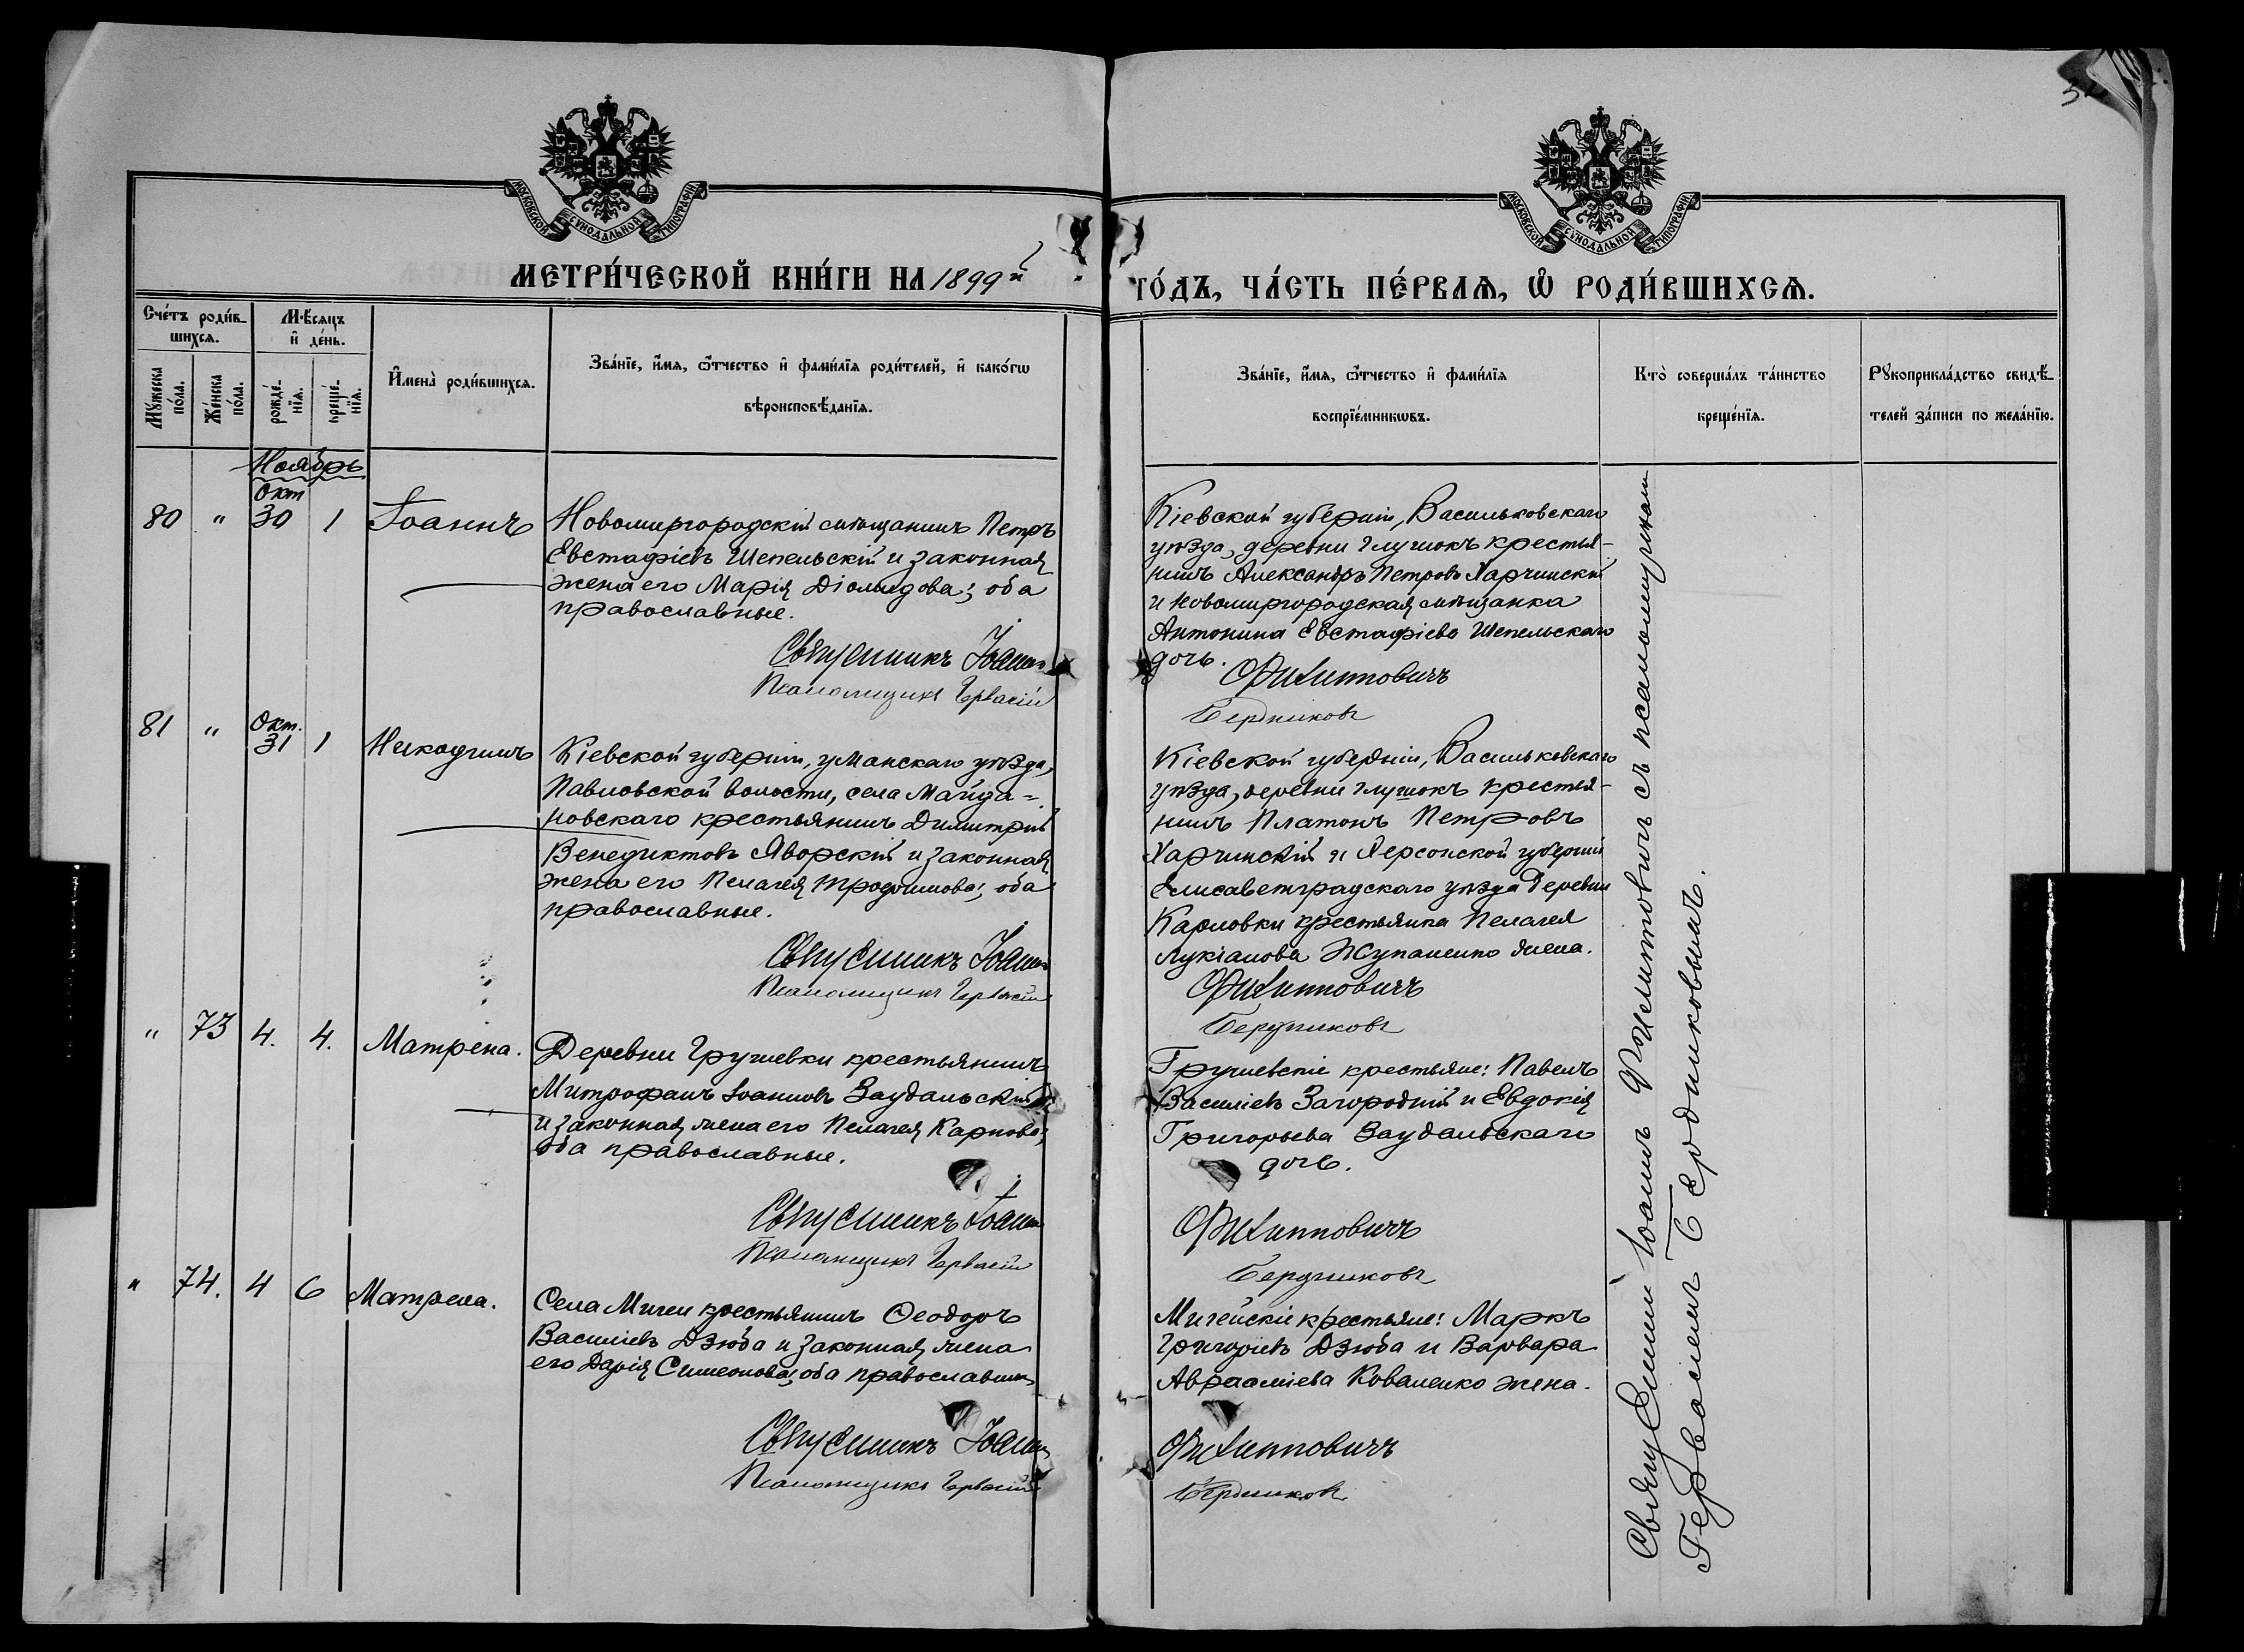 МОСКОВСКОЙ СѴНОДАЛЬНОЙ ТИПОГРАФІИ
МОСКОВСКОЙ СѴНОДАЛЬНОЙ ТИПОГРАФІИ
МЕТРИ́ЧЕСКОЙ КНИ́ГИ НА 1899й
ГО́ДЪ, ЧА́СТЬ ПЕ́РВАѦ, Ѽ РОДИ́ВШИХСѦ.
Сче́тъ роди́в-
шихсѧ.
Мѣ́сяцъ
и҆ де́нь.
Мꙋ́жеска
по́ла.
Же́нска
по́ла.
рожде́-
нїѧ.
креще́-
нїѧ.
И҆мена̀ роди́вшихсѧ.
Зва́нїе, и҆́мѧ, ѻ҆́тчество и҆ фами́лїѧ роди́телей, и҆ како́гѡ
вѣроисповѣ́данїѧ.
Зва́нїе, и҆́мѧ, ѻ҆́тчество и҆ фами́лїѧ
воспрїе́мникѡвъ.
Кто̀ соверша́лъ та́инство
креще́нїѧ.
Рꙋкоприкла́дство свидѣ́-
телей за́писи по жела́нїю.
Ноябрь
Окт
80 " 30 1 Іоаннъ
Новомиргородскій мѣщанинъ Петръ
Евстафіевъ Шепельскій и законная
жена его Марія Діомидова; оба
православные.
Священникъ Іоаннъ
Псаломщикъ Гервасій
Кіевской губерніи, Васильковскаго
уѣзда, деревни Глушокъ крестья-
нинъ Александръ Петровъ Харчинскій
и Новомиргородская мѣщанка
Антонина Евстафіева Шепельскаго
дочь.
Филипповичъ
Бердниковъ
81 " Окт. 31 1 Никодимъ
Кіевской губерніи, Уманскаго уѣзда,
Павловской волости, села Майда=
новскаго крестьянинъ Димитрій
Венедиктовъ Яворскій и законная
жена его Пелагея Трофимова; оба
православные.
Священникъ Іоаннъ
Псаломщикъ Гервасій
Кіевской губерніи, Васильковскаго
уѣзда, деревни Глушокъ крестья-
нинъ Платонъ Петровъ
Харчинскій и Херсонской губерніи
Елисаветградскаго уѣзда деревни
Карловки крестьянка Пелагея
Лукіанова Жупаненко жена.
Филипповичъ
Бердниковъ
" 73 4. 4. Матрена.
Деревни Грушевки крестьянинъ
Митрофанъ Іоанновъ Заудальскій
и законная жена его Пелагея Карпова;
оба православные.
Священникъ Іоаннъ
Псаломщикъ Гервасій
Грушевскіе крестьяне: Павелъ
Василіевъ Загородній и Евдокія
Григорьева Заудальскаго
дочь.
Филипповичъ
Бердниковъ
" 74. 4 6 Матрена.
Села Мигеи крестьянинъ Ѳеодоръ
Василіевъ Дзюба и законная жена
его Дарія Симеонова; оба православные
Священникъ Іоаннъ
Псаломщикъ Гервасій
Мигейскіе крестьяне: Маркъ
Григоріевъ Дзюба и Варвара
Авраамiева Коваленко жена.
Филипповичъ
Бердниковъ
Священникъ Іоаннъ Филипповичъ съ псаломщикомъ
Гервасіемъ Бердниковымъ.